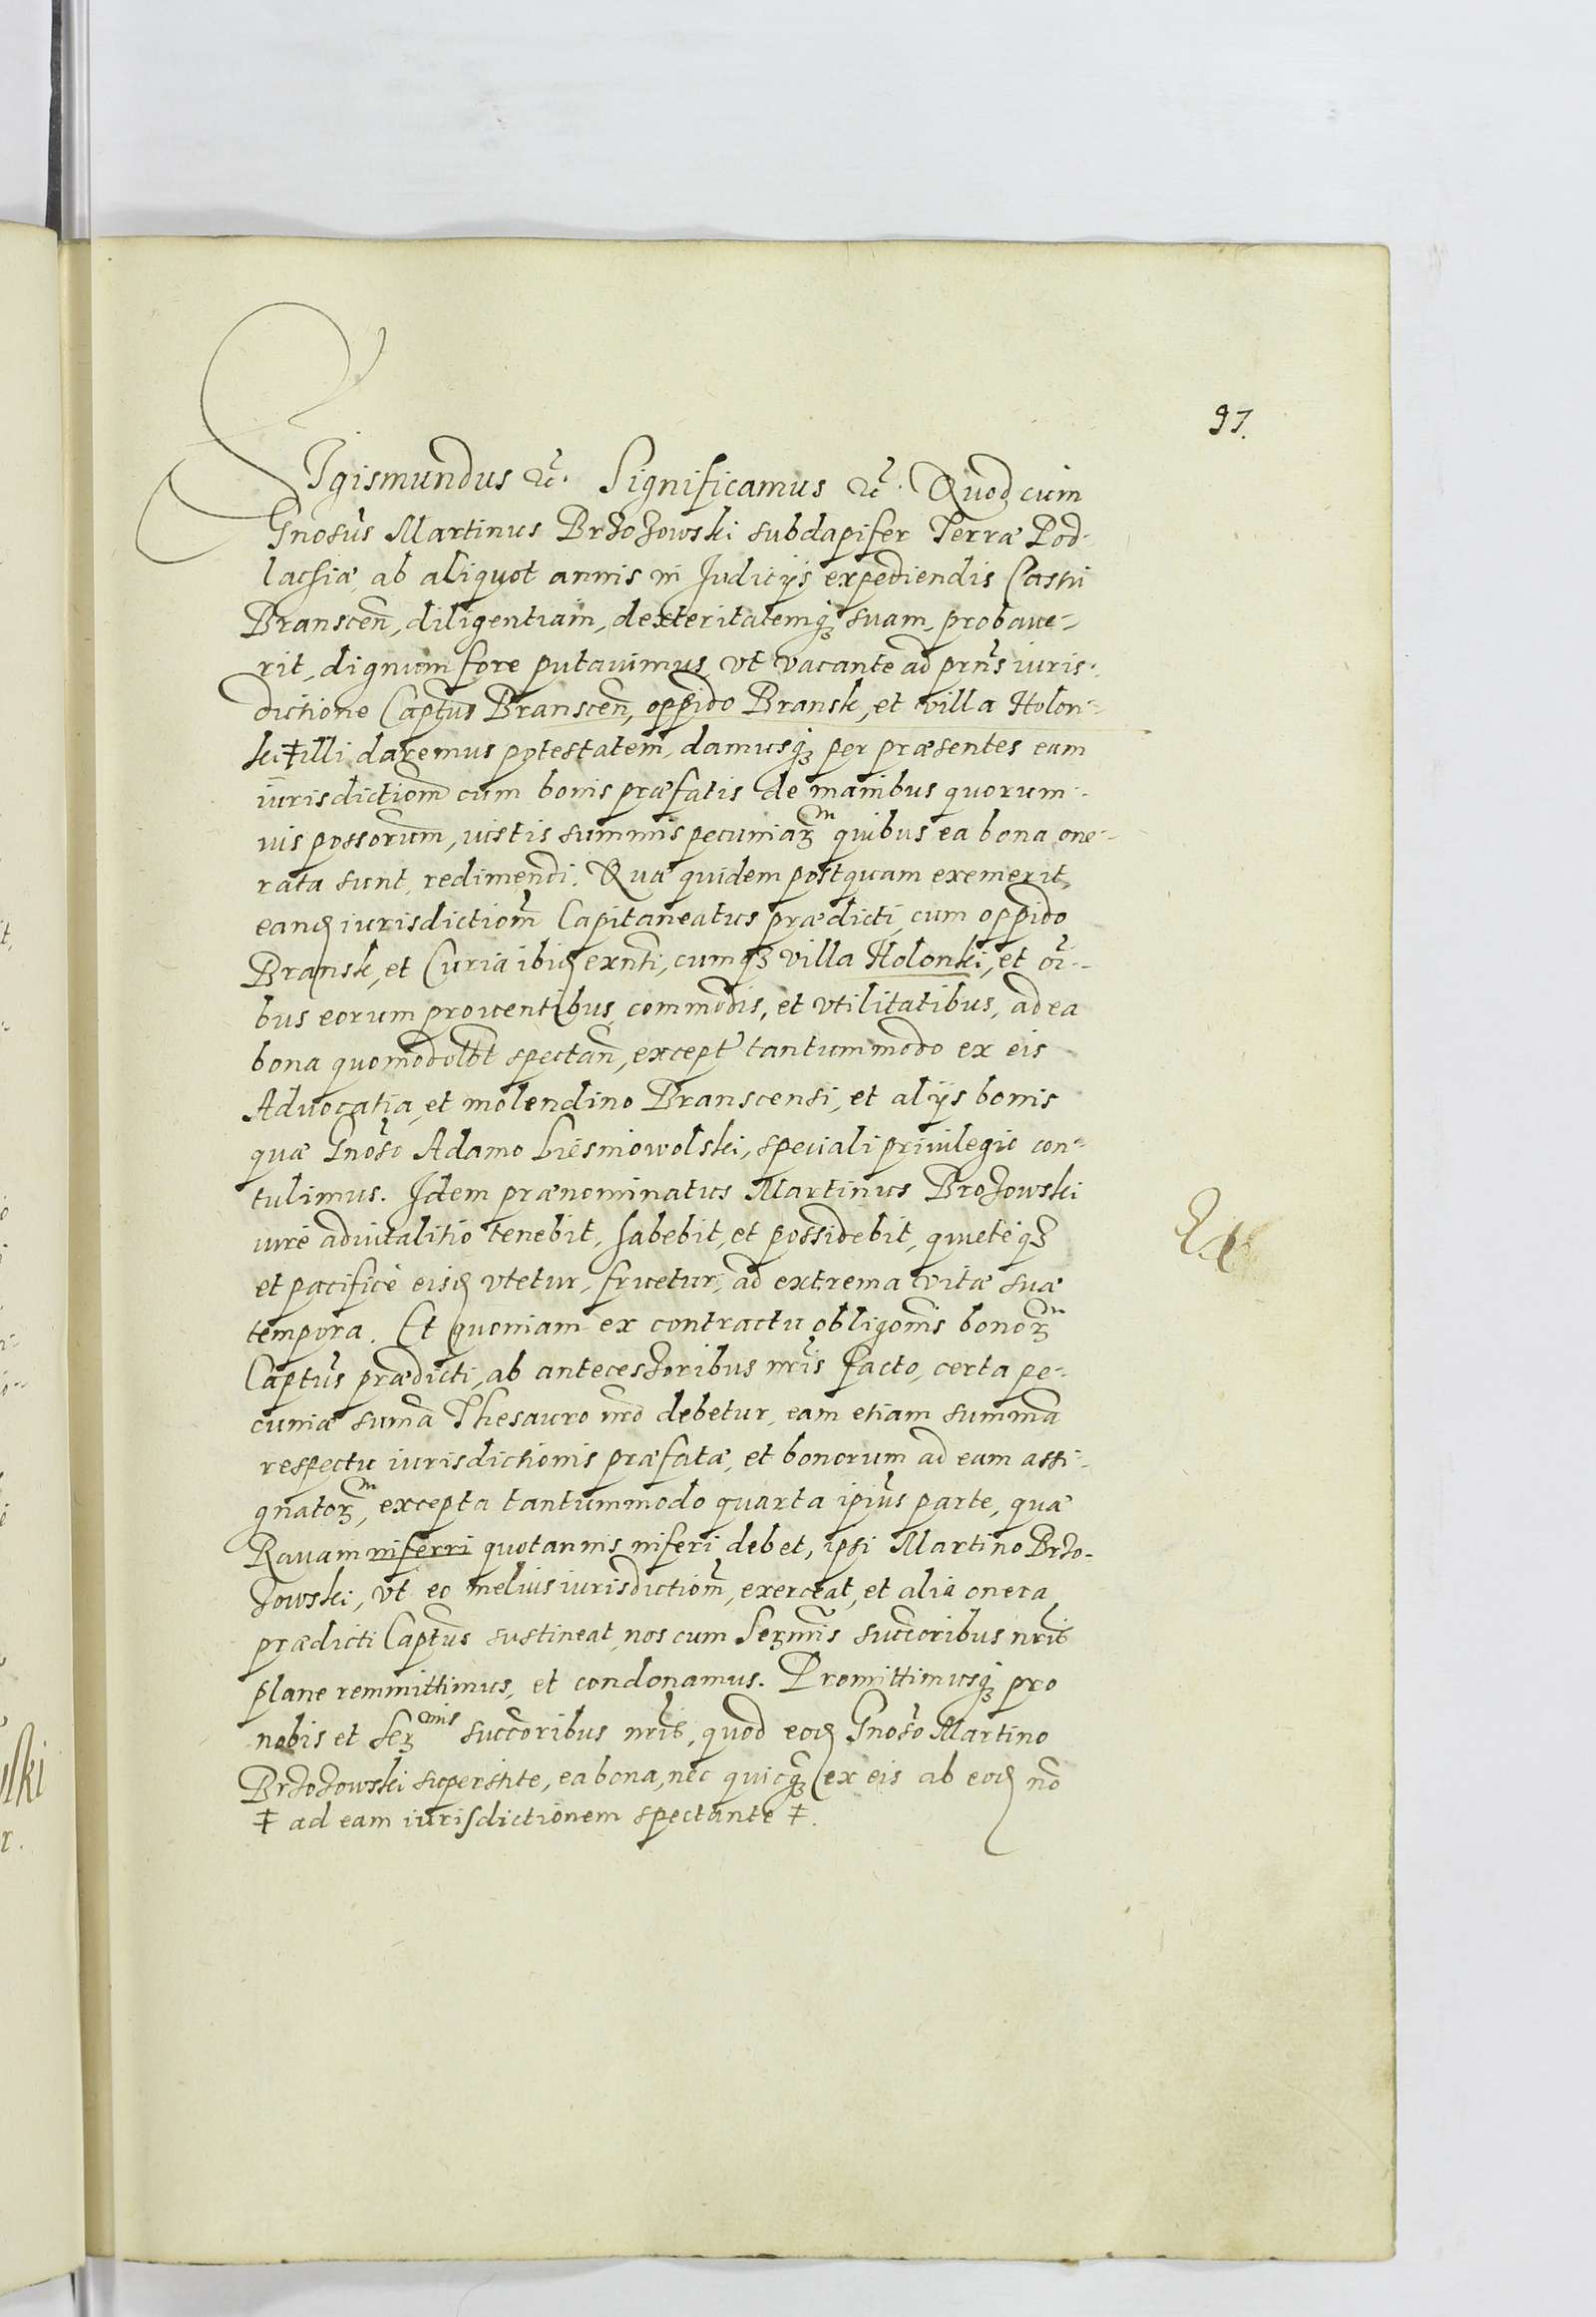 97.
Sigismundus etc. Significamus etc. Quod cum
Gnosus Martinus Brzozowski subdapifer Terræ Pod-
lachiæ, ab aliquot annis in Judicijs expediendis Castri
Branscen̄, diligentiam, dexteritatemq́ꝫ suam, probaue-
rit, dignum fore putauimus, vt vacante ad prn̄s iuris-
dictione Captūs Branscen̄, oppido Bransk, et villa Holon-
ki ‡ illi daremus potestatem, damusq́ꝫ per præsentes eam
iurisdictiōm cum bonis præfatis de manibus quorum-
uis possōrum, iustis summis pecuniaꝝ quibus ea bona one-
rata sunt, redimendi. Quæ quidem postquam exemerit,
eand iurisdictiōm Capitaneatus prædicti, cum oppido
Bransk, et Curia ibid exn̄ti, cumqꝫ villa Holonki, et oi-
bus eorum prouentibus, commodis, et vtilitatibus, ad ea
bona quomodolbt spectan̄, except tantummodo ex eis
Aduocatia, et molendino Branscensi, et alijs bonis
quæ Gnoso Adamo Lieśniowolski, speciali priuilegio con-
tulimus. Idem prænominatus Martinus Brozowski
iure aduitalitio tenebit, habebit, et possidebit, quieteqꝫ
et pacificè eisd vtetur, fruetur, ad extrema vitæ suæ
tempora. Et quoniam ex contractu obligōnis bonoꝝ
Captūs prædicti, ab antecessoribus nr̄is facto, certa pe-
cuniæ sum̄a Thesauro nr̄o debetur, eam etiam summā
respectu iurisdictionis præfatæ, et bonorum ad eam assi-
gnatoꝝ, excepta tantummodo quarta ipīus parte, quæ
Rauam inferri quotannis inferi debet, ipsi Martino Brzo-
zowski, vt eo melius iurisdictiōm, exerceat, et alia onera
prædicti Captūs sustineat, nos cum Serm̄is succōribus nr̄is
plane remmittimus, et condonamus. Promittimusq́ꝫ pro
nobis et Ser mis succōribus nr̄is, quod eod Gnoso Martino
Brzozowski superstite, ea bona, nec quicqꝫ ex eis ab eod nō
‡ ad eam iurisdictionem spectante ‡.